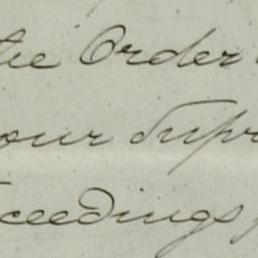 the Order
our Supr
ceedings